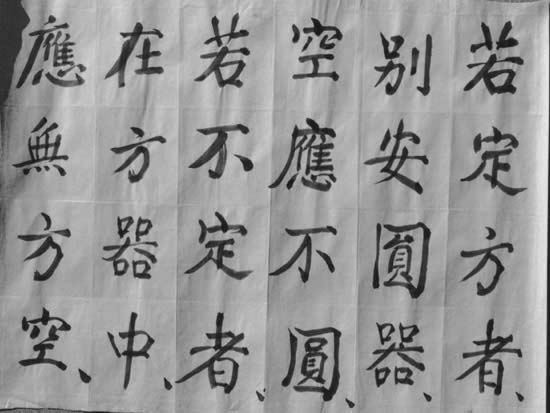 若定方者、
別安圓器、
空應不圓、
若不定者、
在方器中、
應無方空、